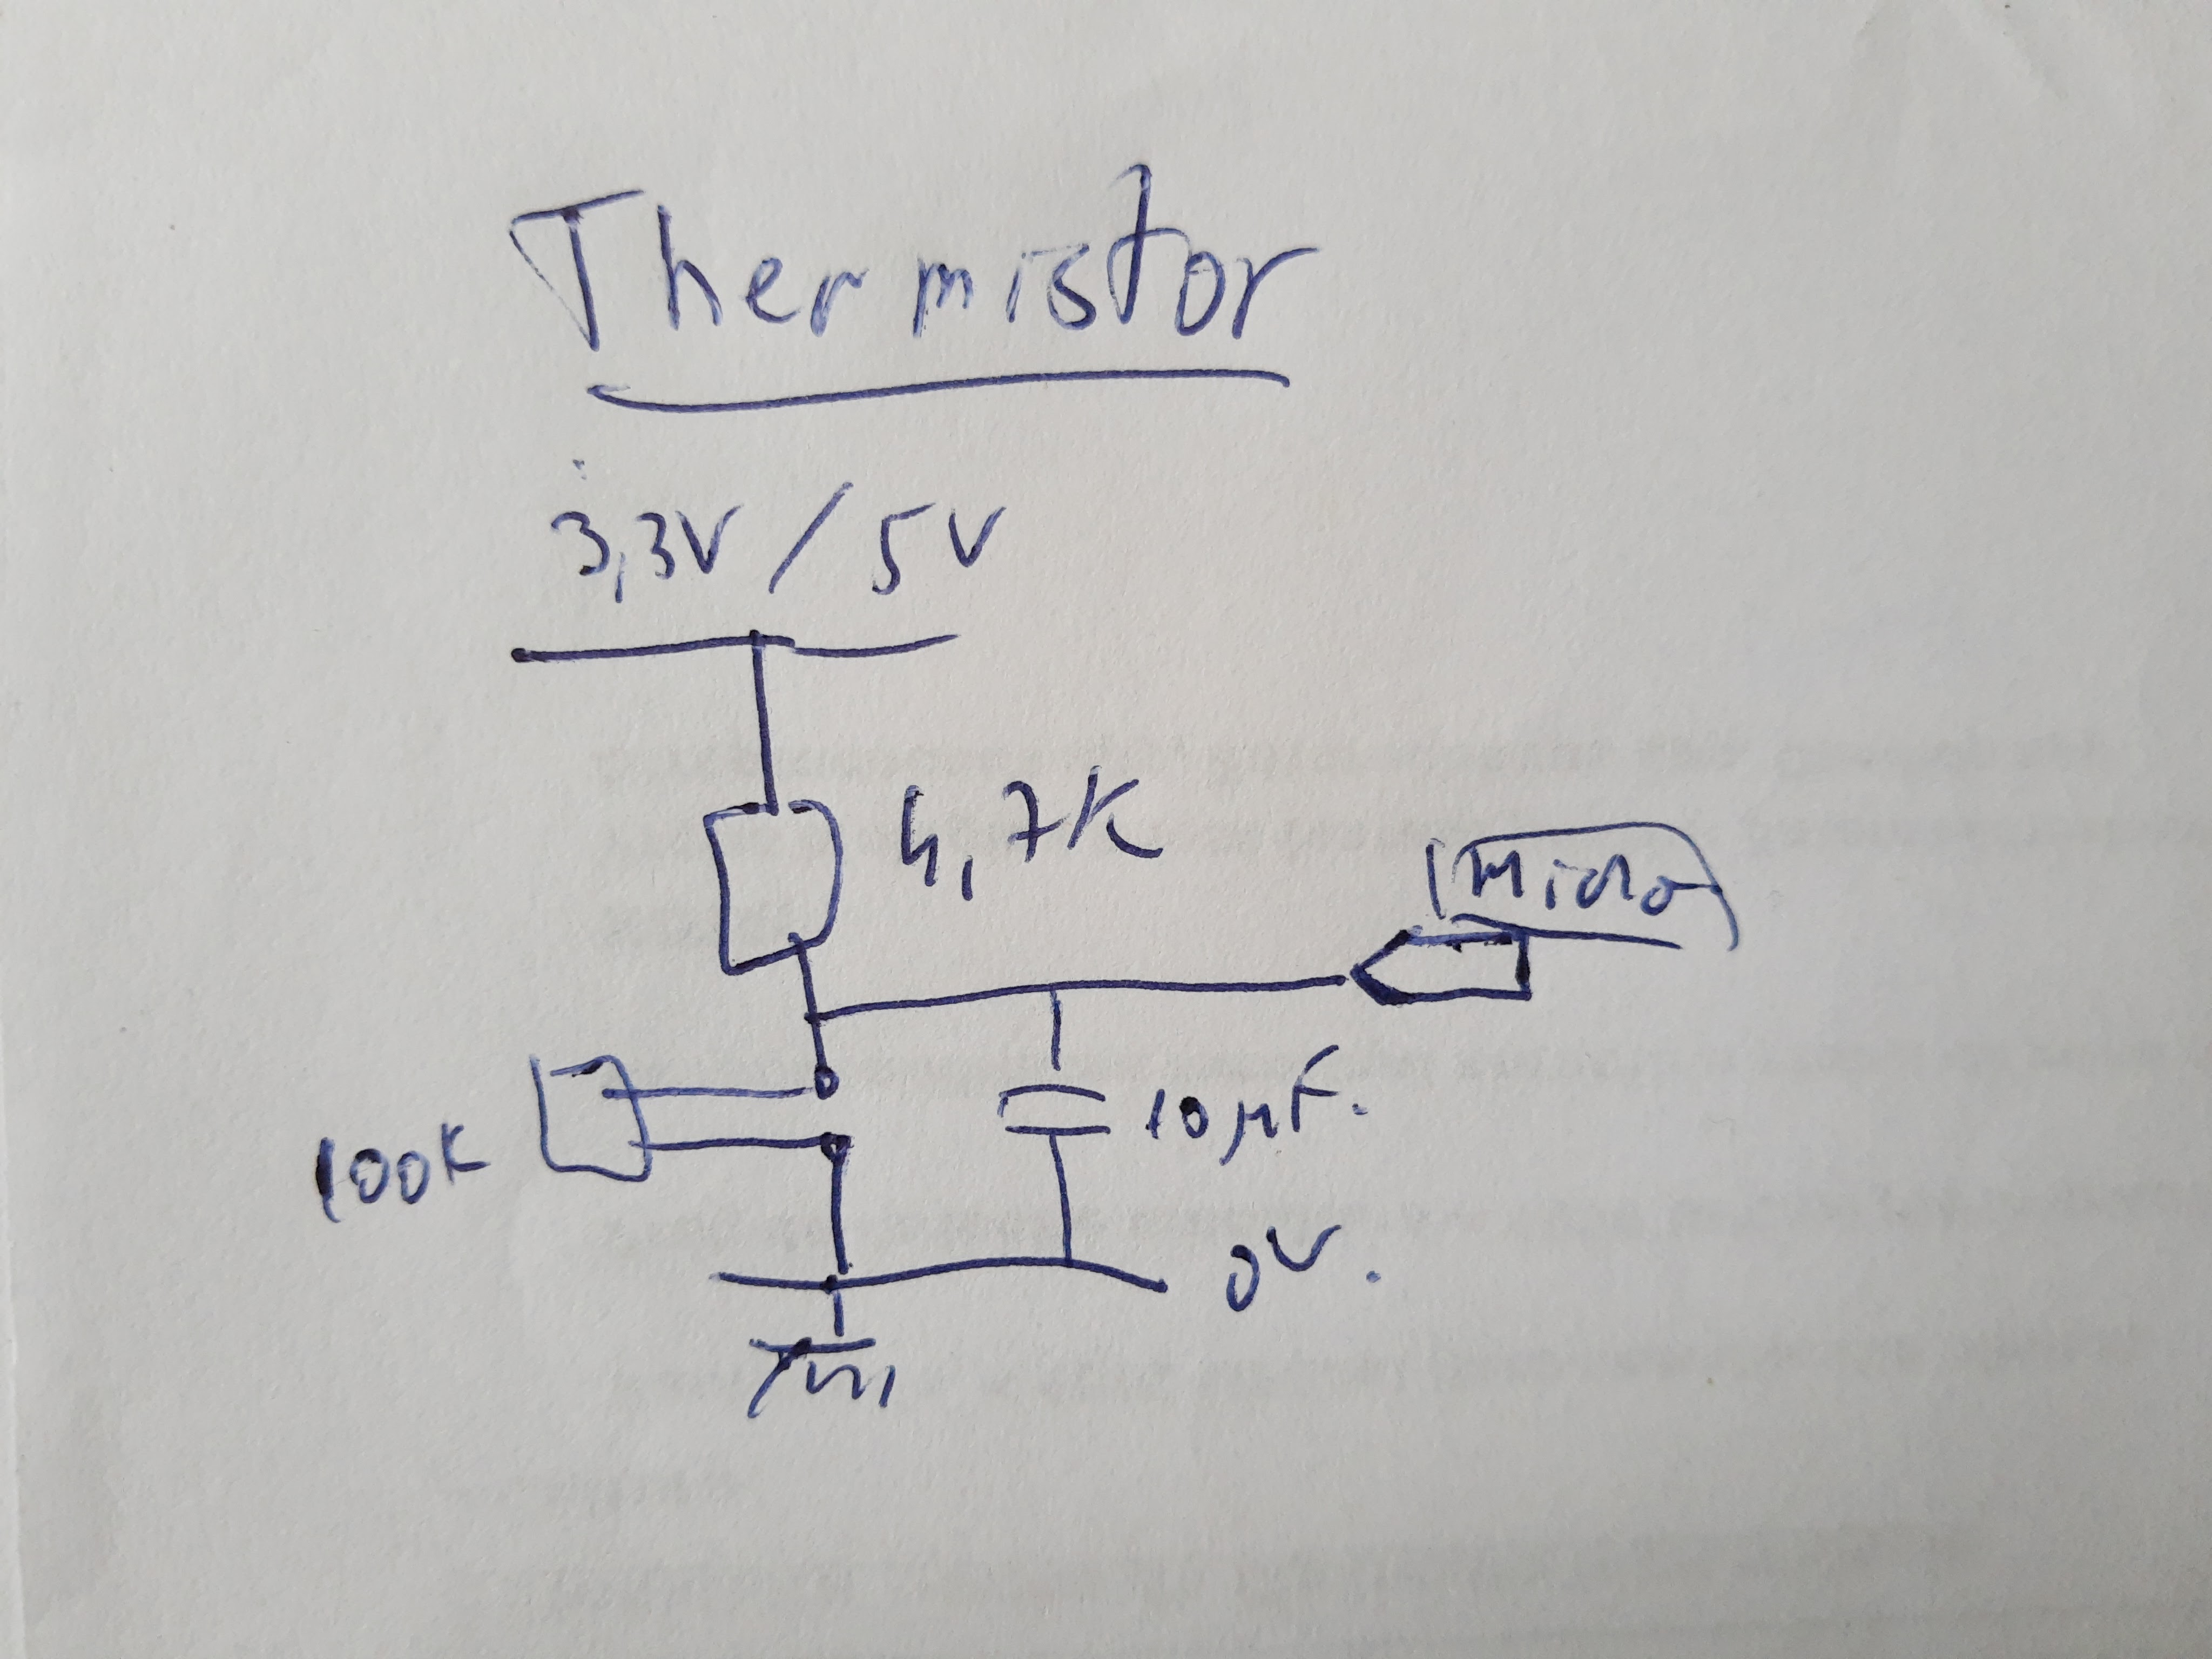 Thermistor
3,3V / 5V
4,7K
Micro
100K
10µF.
0V.